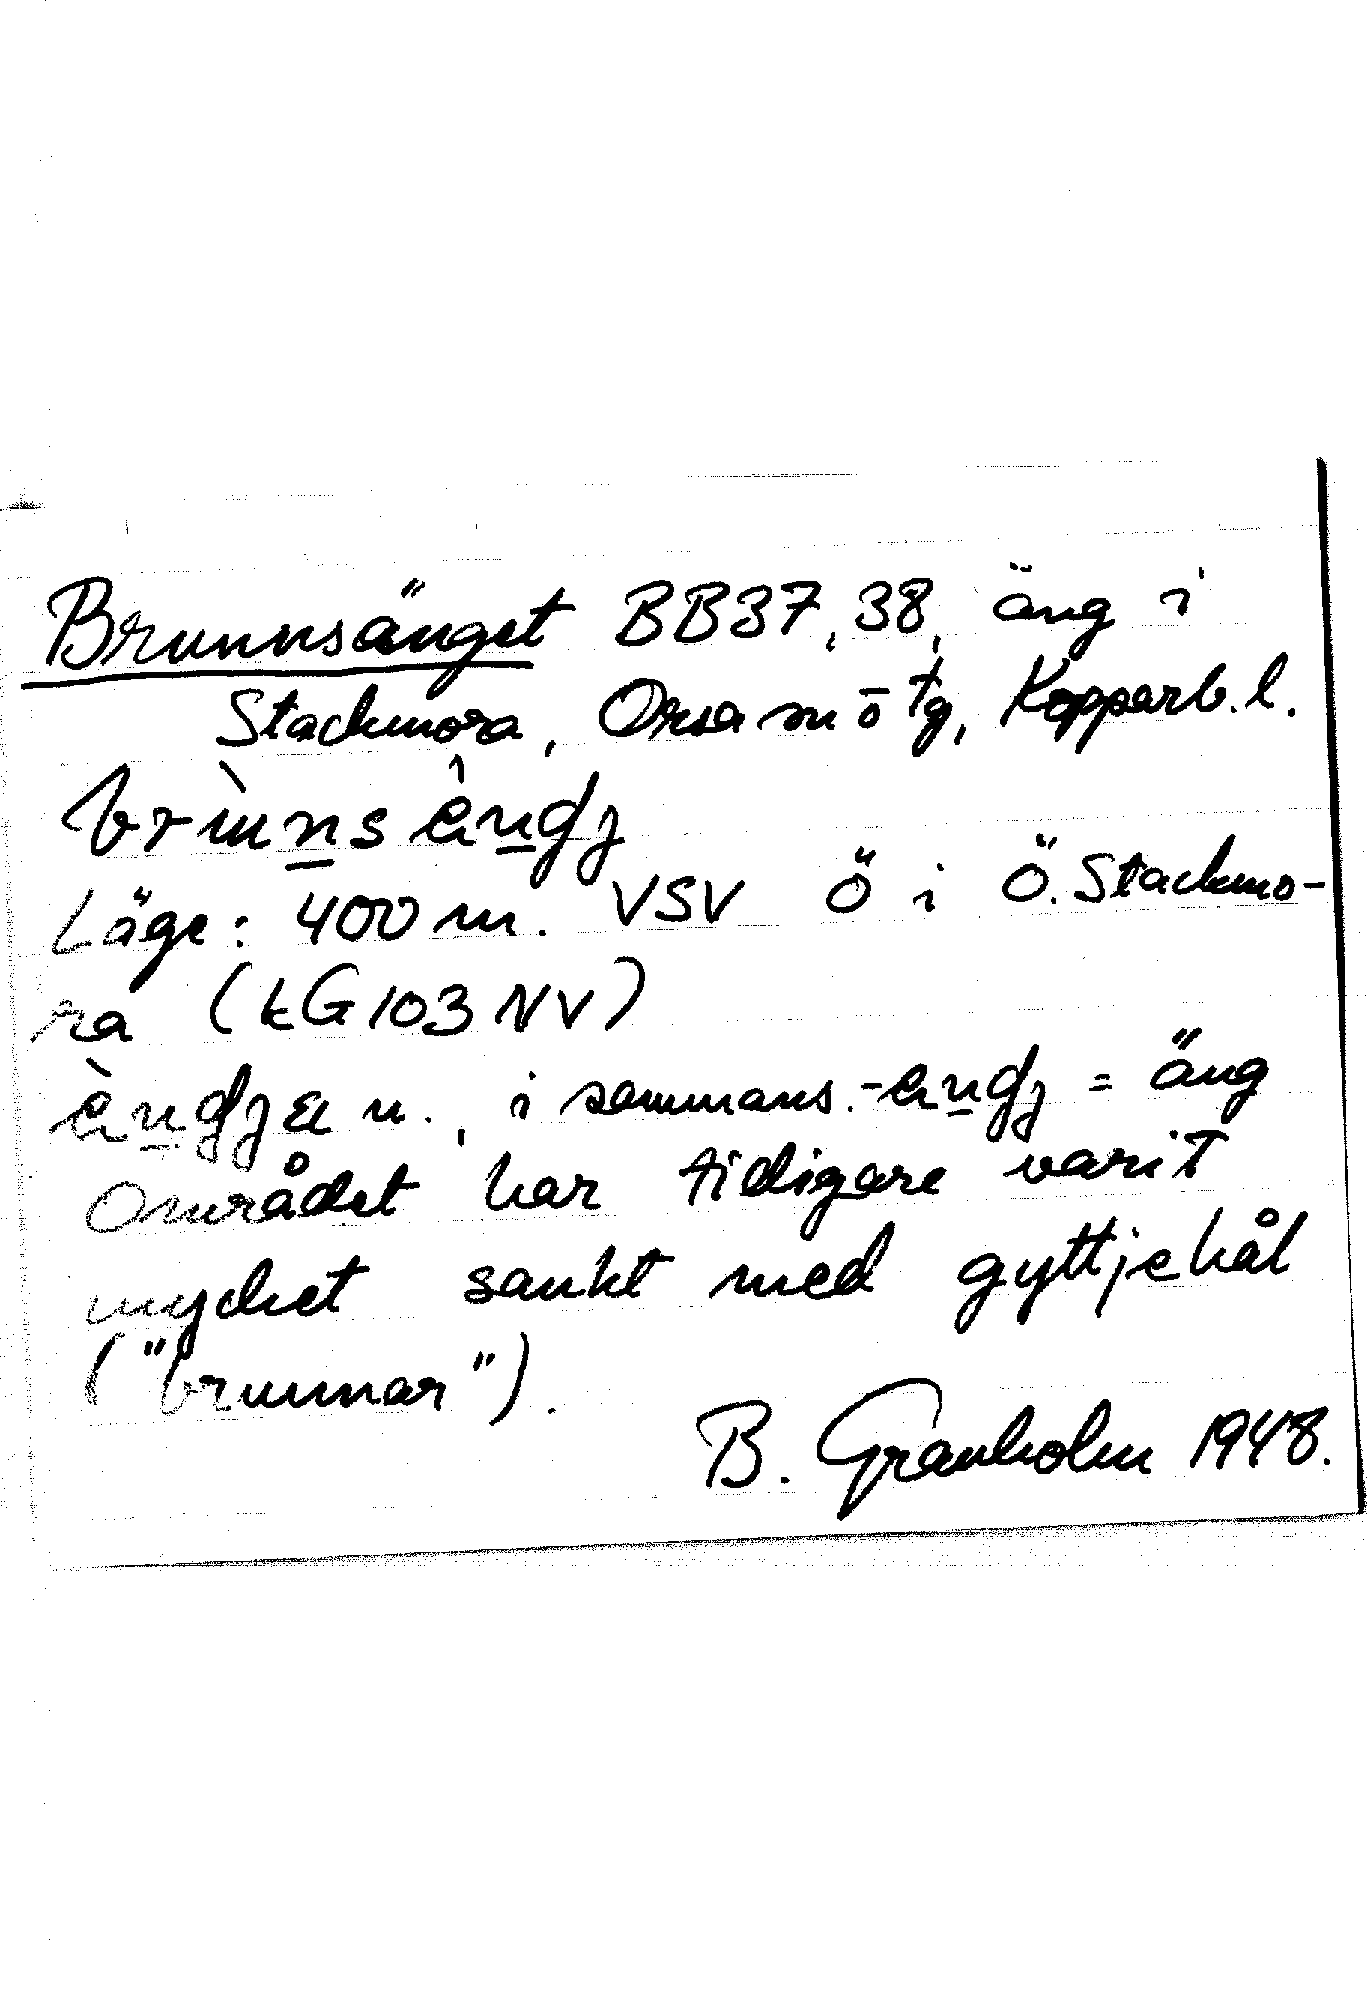 Brunnsänget BB37,38, äng i
Stackmora, Orsa sn o tg, Kopparb. l.
Läge: 400 m. VSV Ö i Ö. Stackmo-
ra (kG103 NV)
n., i sammans. = äng
Området har tidigare varit
mycket sankt med gyttjehål
("brunnar").
B. Granholm 1948.